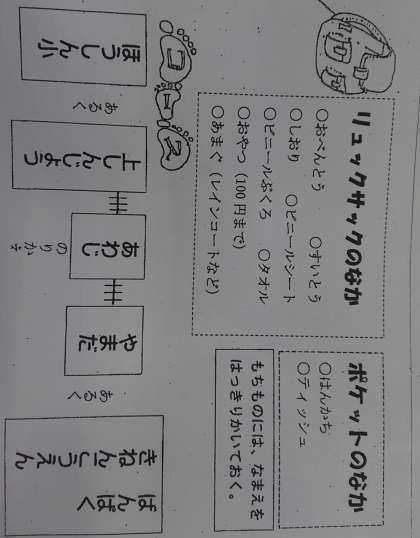 リュックサックのなか
○おべんとう ○すいとう
○しおり ○ビニールシート
○ビニールぶくろ ○タオル
○おやつ（100円まで）
○あまぐ（レインコートなど）
ポケットのなか
○はんかち
○ティッシュ
もちものには、なまえを
はっきりかいておく。
コース
ほうしん小
あるく
上しんじょう
あわじ
のりかえ
やまだ
あるく
ばんぱく
きねんこうえん